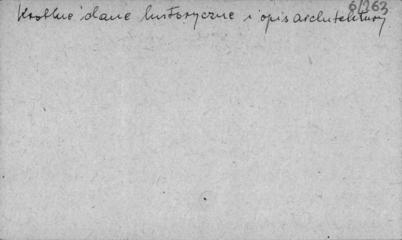 6/263
Krótkie dane historyczne i opis architektury